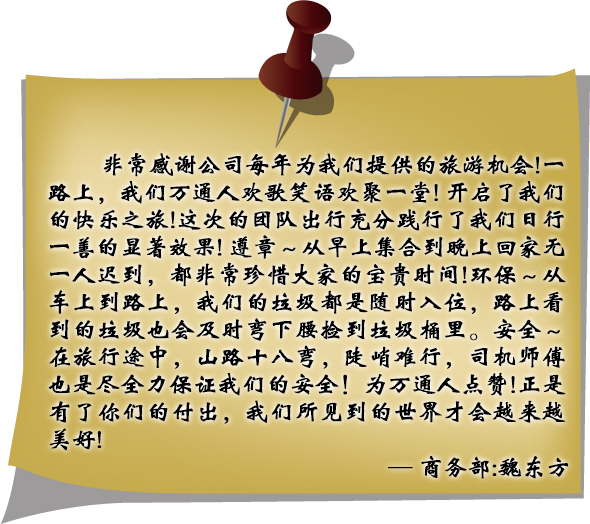 非常感谢公司每年为我们提供的旅游机会!一
路上，我们万通人欢歌笑语欢聚一堂! 开启了我们
的快乐之旅!这次的团队出行充分践行了我们日行
一善的显著效果! 遵章～从早上集合到晚上回家无
一人迟到，都非常珍惜大家的宝贵时间!环保～从
车上到路上，我们的垃圾都是随时入位，路上看
到的垃圾也会及时弯下腰捡到垃圾桶里。安全～
在旅行途中，山路十八弯，陡峭难行，司机师傅
也是尽全力保证我们的安全！为万通人点赞!正是
有了你们的付出，我们所见到的世界才会越来越
美好!
— 商务部:魏东方